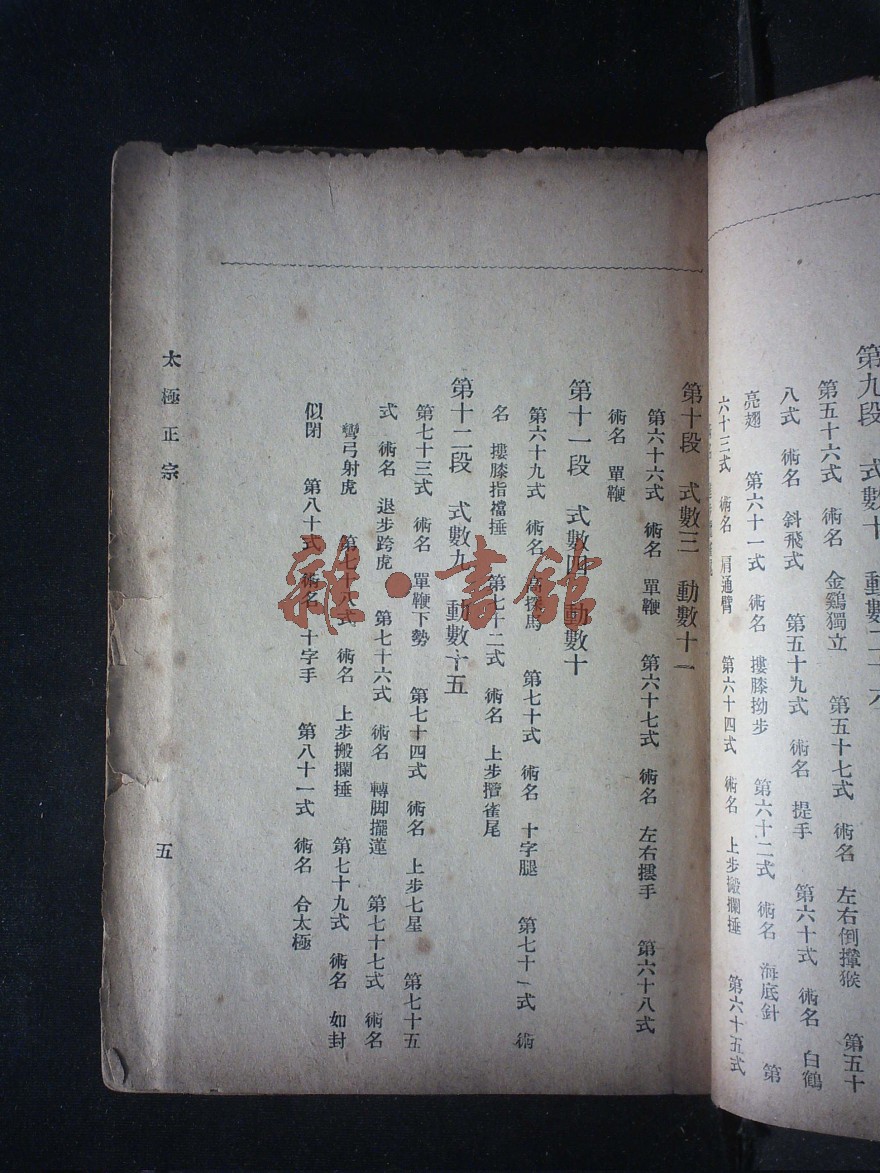 第九段　式數十　動數二十六
第五十六式　術名　金鷄獨立　第五十七式　術名　左右倒攆猴　第五十
八式　術名　斜飛式　第五十九式　術名　提手　第六十式　術名　白鶴
亮翅　第六十一式　術名　摟膝拗步　第六十二式　術名　海底針　第
六十三式　術名　肩通臂　第六十四式　術名　上步搬攔捶　第六十五式
第十段　式數三　動數十一
第六十六式　術名　單鞭　第六十七式　術名　左右摟手　第六十八式
術名　單鞭
第十一段　式數四　動數十
第六十九式　術名　高探馬　第七十式　術名　十字腿　第七十一式　術
名　摟膝指襠捶　第七十二式　術名　上步攬雀尾
第十二段　式數九　動數十五
第七十三式　術名　單鞭下勢　第七十四式　術名　上步七星　第七十五
式　術名　退步跨虎　第七十六式　術名　轉脚擺蓮　第七十七式　術名
彎弓射虎　第七十八式　術名　上步搬攔捶　第七十九式　術名　如封
似閉　第八十式　術名　十字手　第八十一式　術名　合太極
太極正宗
五
雜·書館